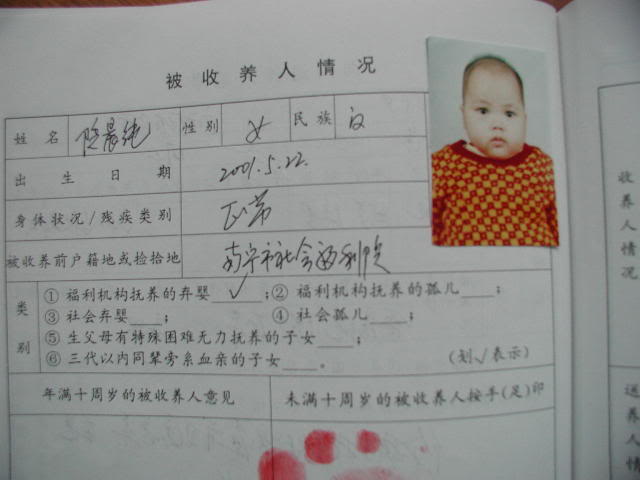 被收养人情况
姓名 陆晨纯 性别 女 民族 汉
出生日期 2001.5.22.
身体状况/残疾类别 正常
被收养前户籍地或捡拾地 南宁市社会福利院
类别
① 福利机构抚养的弃婴 ✓ ;② 福利机构抚养的孤儿____;
③ 社会弃婴____; ④ 社会孤儿____;
⑤ 生父母有特殊困难无力抚养的子女____;
⑥ 三代以内同辈旁系血亲的子女____。 (划√表示)
年满十周岁的被收养人意见 未满十周岁的被收养人按手(足)印
收养人情况
送养人情